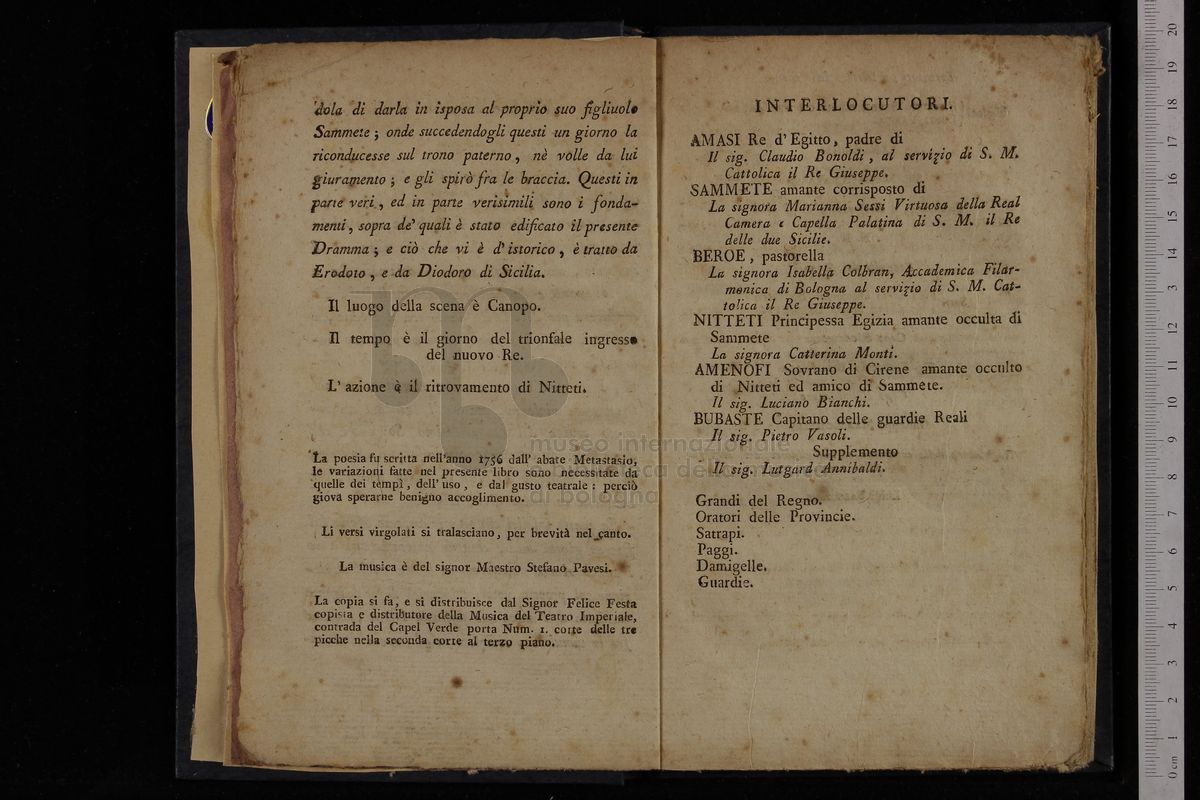 dola di darla in isposa al proprio suo figliuolo
Sammete ; onde succedendogli questi un giorno la
riconducesse sul trono paterno , nè volle da lui
giuramento ; e gli spirò fra le braccia. Questi in
parte veri , ed in parte verisimili sono i fonda-
menti , sopra de' quali è stato edificato il presente
Dramma ; e ciò che vi è d' istorico , è tratto da
Erodoto , e da Diodoro di Sicilia.
Il luogo della scena è Canopo.
Il tempo è il giorno del trionfale ingresso
del nuovo Re.
L' azione è il ritrovamento di Nitteti.
La poesia fu scritta nell'anno 1756 dall' abate Metastasio,
le variazioni fatte nel presente libro sono necessitate da
quelle dei tempi , dell' uso , e dal gusto teatrale : perciò
giova sperarne benigno accoglimento.
Li versi virgolati si tralasciano, per brevità nel canto.
La musica è del signor Maestro Stefano Pavesi.
La copia si fa, e si distribuisce dal Signor Felice Festa
copista e distributore della Musica del Teatro Imperiale,
contrada del Capel Verde porta Num. 1. corte delle tre
picche nella seconda corte al terzo piano.
INTERLOCUTORI.
AMASI Re d' Egitto, padre di
Il sig. Claudio Bonoldi , al servizio di S. M.
Cattolica il Re Giuseppe.
SAMMETE amante corrisposto di
La signora Marianna Sessi Virtuosa della Real
Camera e Capella Palatina di S. M. il Re
delle due Sicilie.
BEROE , pastorella
La signora Isabella Colbran, Accademica Filar-
monica di Bologna al servizio di S. M. Cat-
tolica il Re Giuseppe.
NITTETI Principessa Egizia amante occulta di
Sammete
La signora Catterina Monti.
AMENOFI Sovrano di Cirene amante occulto
di Nitteti ed amico di Sammete.
Il sig. Luciano Bianchi.
BUBASTE Capitano delle guardie Reali
Il sig. Pietro Vasoli.
Supplemento
Il sig. Lutgard Annibaldi.
Grandi del Regno.
Oratori delle Provincie.
Satrapi.
Paggi.
Damigelle.
Guardie.
museo internazionale
di bologna
0 cm 1 2 3 4 5 6 7 8 9 10 11 12 13 14 15 16 17 18 19 20